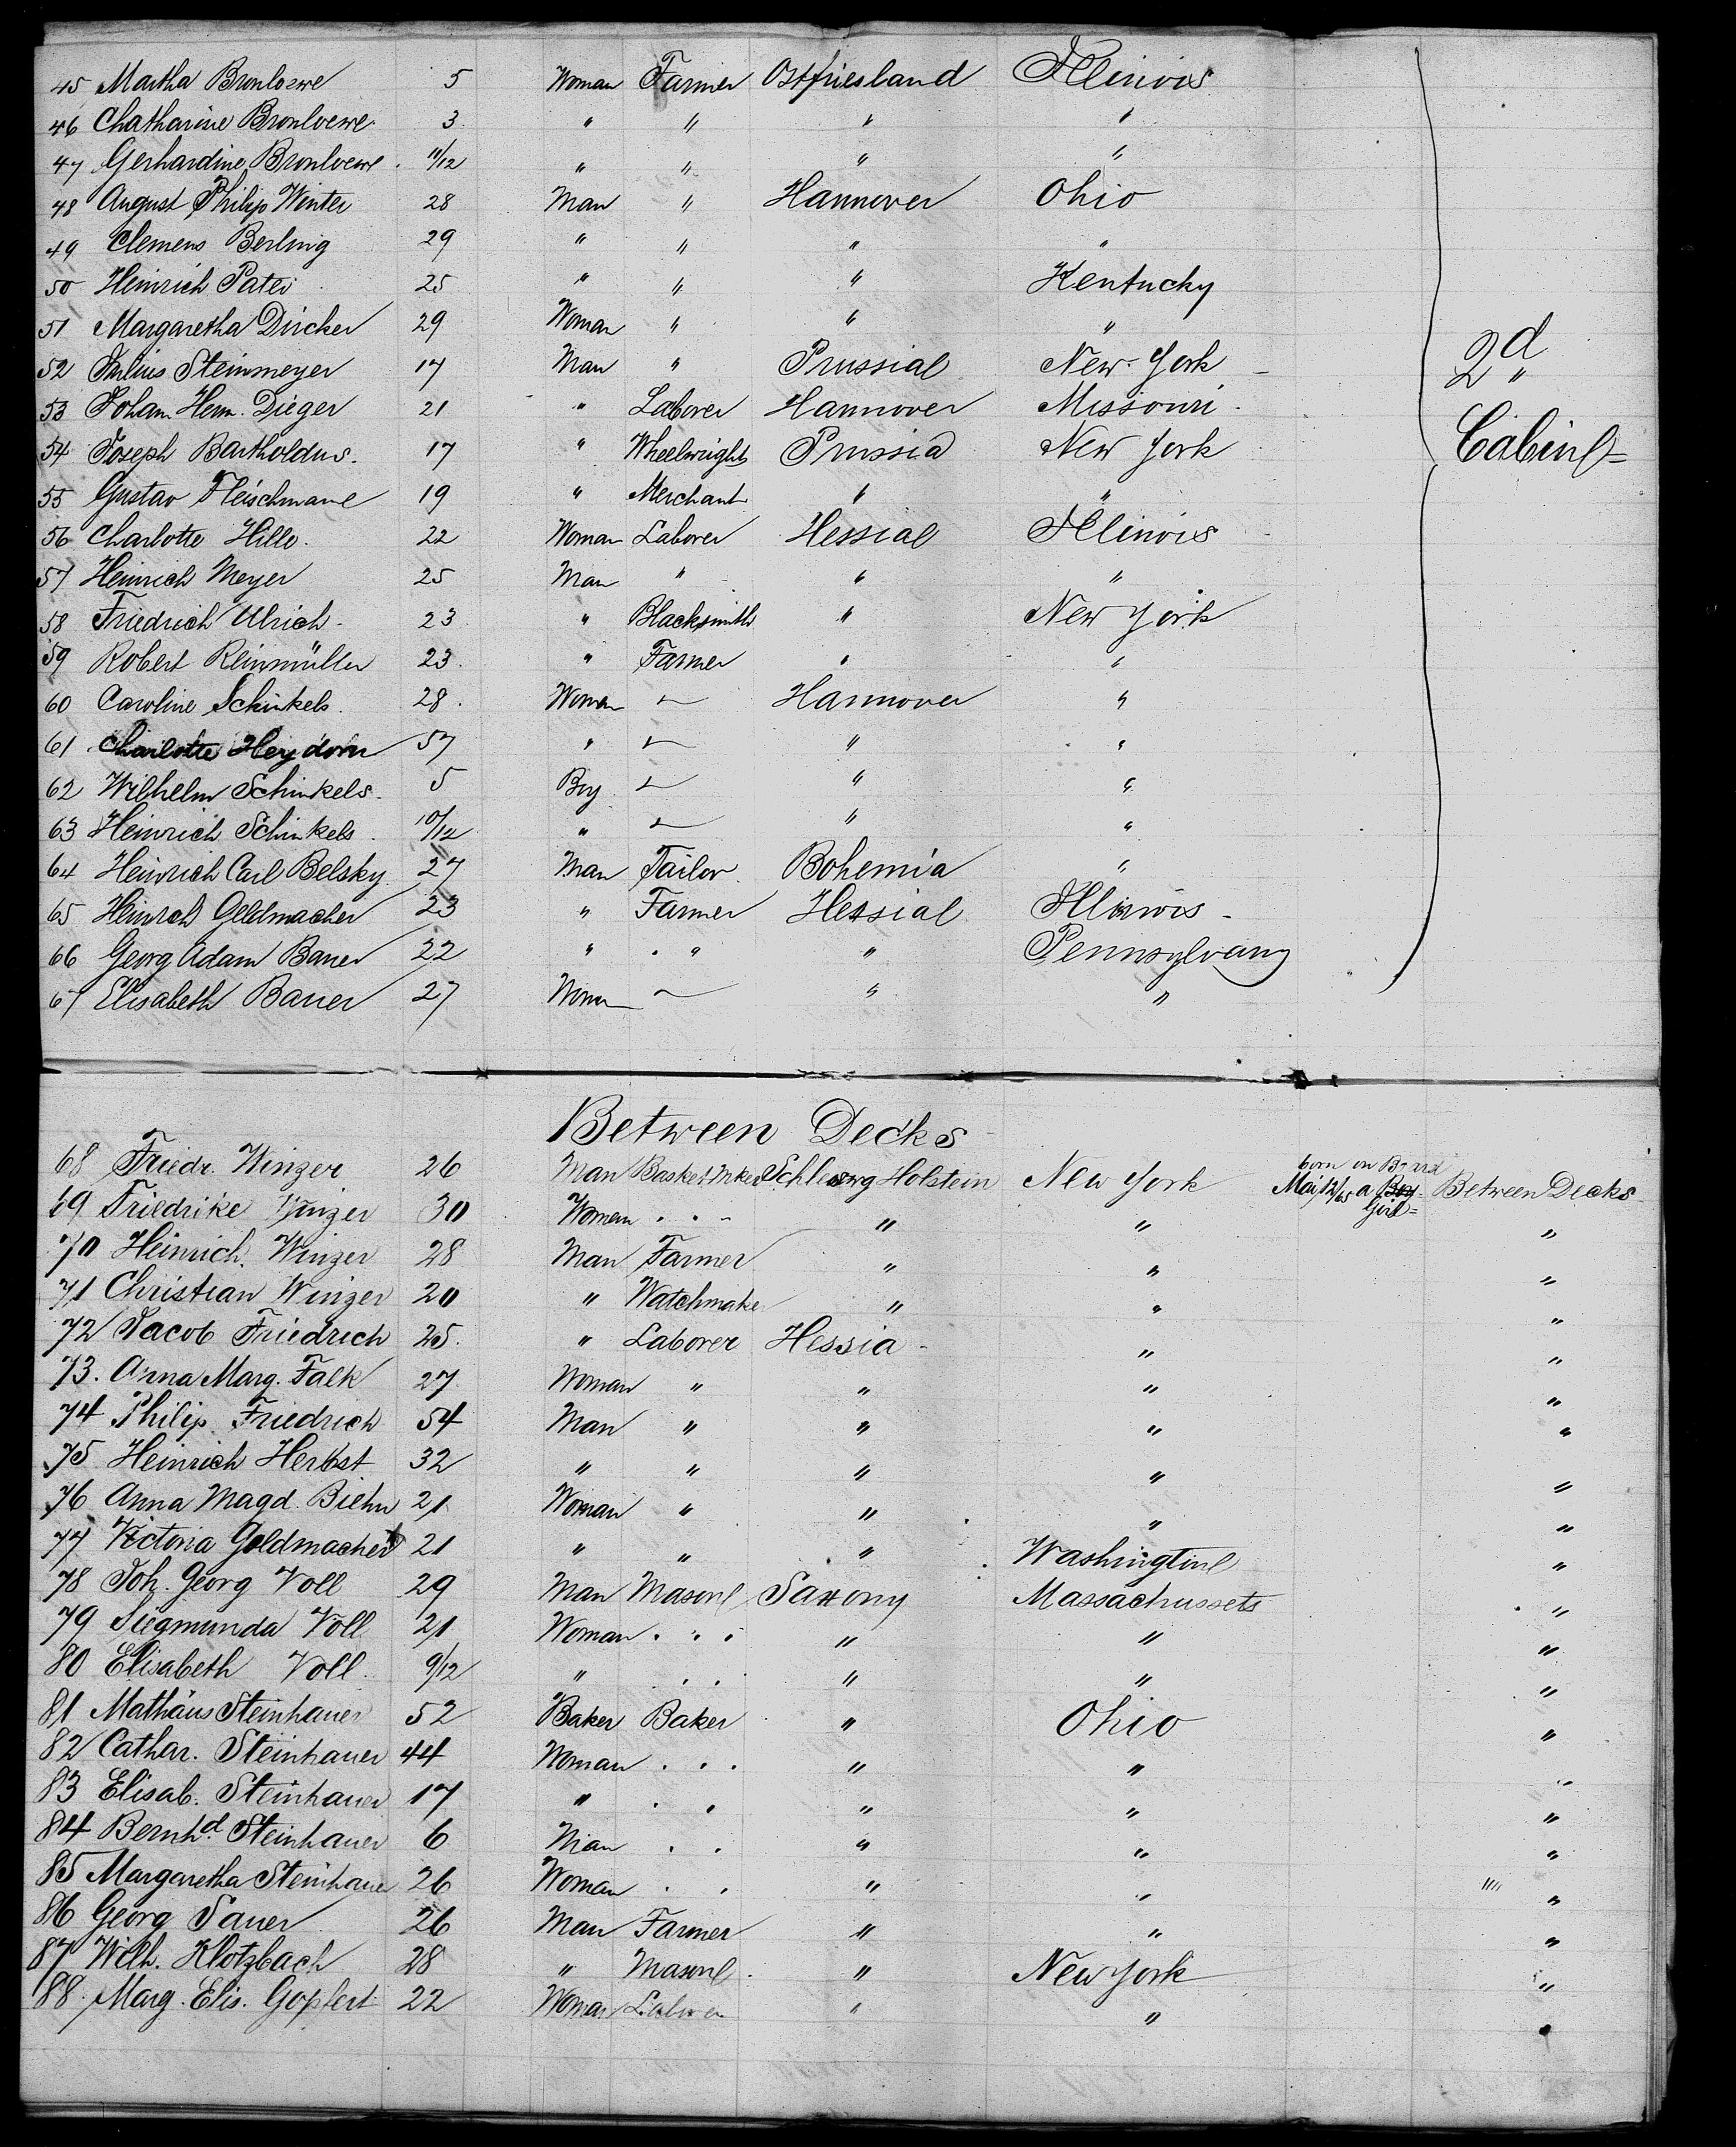 45 Martha Bronloewe 5 Woman Farmer Ostfriesland Illinois
46 Chatharine Bronloewe 3 " " " "
47 Gerhardine Bronloewe 11/12 " " " "
48 August Philip Winter 28 Man " Hannover Ohio
49 Clemens Berling 29 " " " "
50 Heinrich 25 " " " Kentucky
51 Margaretha Dircker 29 Woman " " "
52 Julius Steinmeyer 17 Man " Prussia New-York 2d
53 Joham Herm. Dieger 21 " Laborer Hannover Missouri
54 Joseph Bartholdus. 17 " Wheelwright Prussia New York Cabine
55 Gustav Fleischmann 19 " Merchant " "
56 Charlotte Hille. 22 Woman Laborer Hessia Illinois
57 Heinrich Meyer 25 Man " " "
58 Friedrich Ulrich 23 " Blacksmith " New York
59 Robert Reinmüller 23 " Farmer " "
60 Caroline Schinkels. 28 Woman — Hannover "
61 Charlotte Heydorn 57 " — " "
62 Wilhelm Schinkels 5 Boy — " "
63 Heinrich Schinkels 10/12 " — " "
64 Heinrich Carl Belsky 27 Man Tailor Bohemia "
65 Heinrich Geldmacher 23 " Farmer Hessia Illinois
66 Georg Adam Bauer 22 " " " Pennsylvany
67 Elisabeth Bauer 27 Woman — " "
Between Decks
68 Friedr. Winzer 26 Man Basketmker Schleswig Holstein New York born on Board Mai 12/65 a Boy Girl Between Decks
69 Friedrike Winzer 30 Woman . . - " " "
70 Heinrich. Winzer 28 Man Farmer " " "
71 Christian Winzer 20 " Watchmake " " "
72 Jacob Friedrich 25. " Laborer Hessia " "
73. Anna Marg. Falk 27 Woman " " " "
74 Philip Friedrich 54 Man " " " "
75 Heinrich Herbst 32 " " " " "
76 Anna Magd. Biehn 21 Woman " " " "
77 Victoria Goldmacher 21 " " " Washington "
78 Joh. Georg Voll 29 Man Mason Saxony Massachussets "
79 Siegmunda Voll 21 Woman . . . " " "
80 Elisabeth Voll. 9/12 " . . " " "
81 Mathäus Steinhauer 52 Baker Baker " Ohio "
82 Cathar. Steinhauer 44 Woman . . . " " "
83 Elisab. Steinhauer 17 " . . " " "
84 Bernhd. Steinhauer 6 Man . . " " "
85 Margaretha Steinhauer 26 Woman . . " " "
86 Georg Sauer 26 Man Farmer " " "
87 Wilh. Klotzbach 28 " Mason " New York "
88. Marg. Elis. Gopfert 22 Woman Laborer " " "